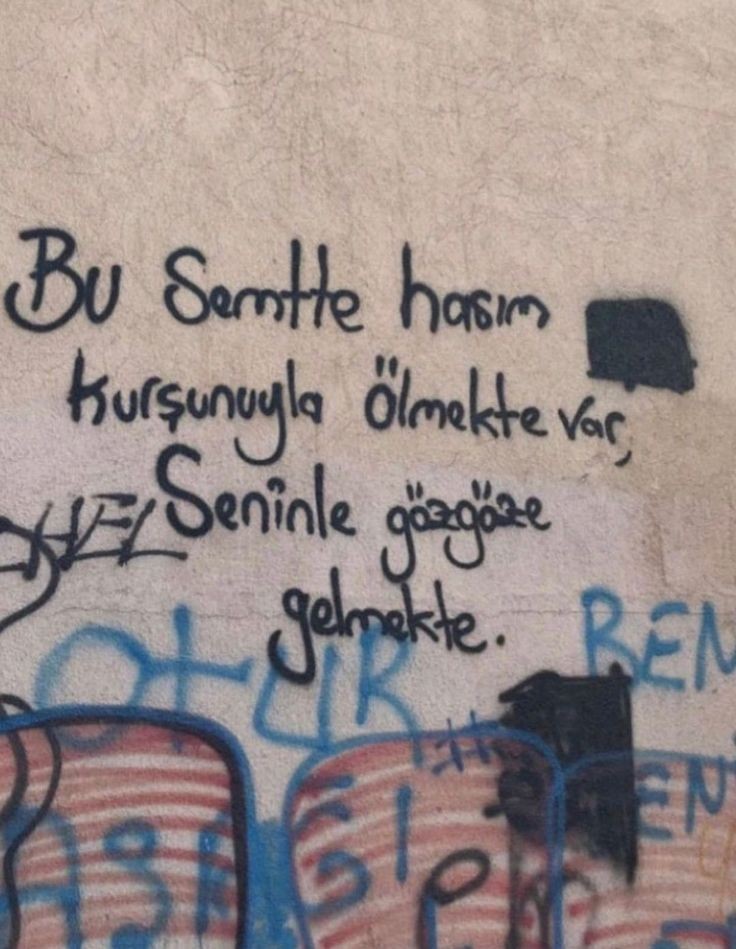 Bu Semtte hasım
kurşunuyla ölmekte var,
Seninle gözgöze
gelmekte.
OtUR
BEN